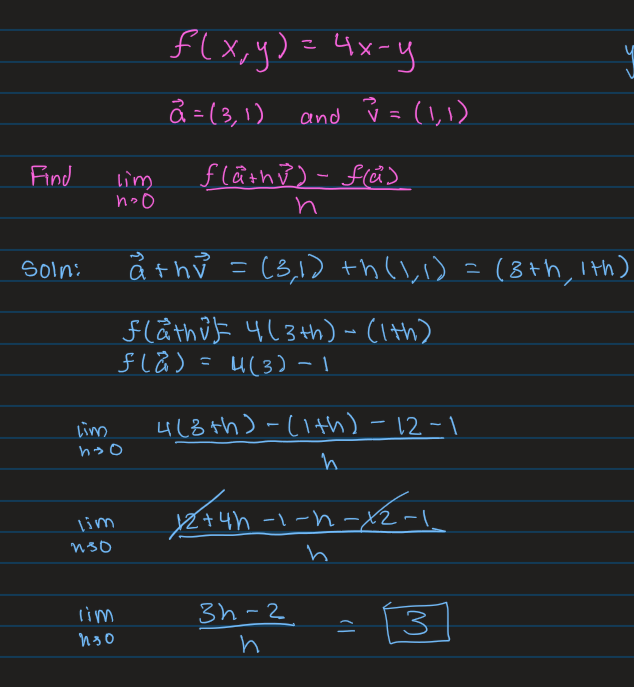 f(x,y) = 4x-y
a⃗ = (3,1) and v⃗ = (1,1)
Find lim h→0 f(a⃗+hv⃗) - f(a⃗) / h
Soln: a⃗ + hv⃗ = (3,1) + h(1,1) = (3+h, 1+h)
f(a⃗+hv⃗) = 4(3+h) - (1+h)
f(a⃗) = 4(3) - 1
lim h→0 4(3+h) - (1+h) - 12 - 1 / h
lim h→0 12 + 4h - 1 - h - 12 - 1 / h
lim h→0 3h - 2 / h = 3